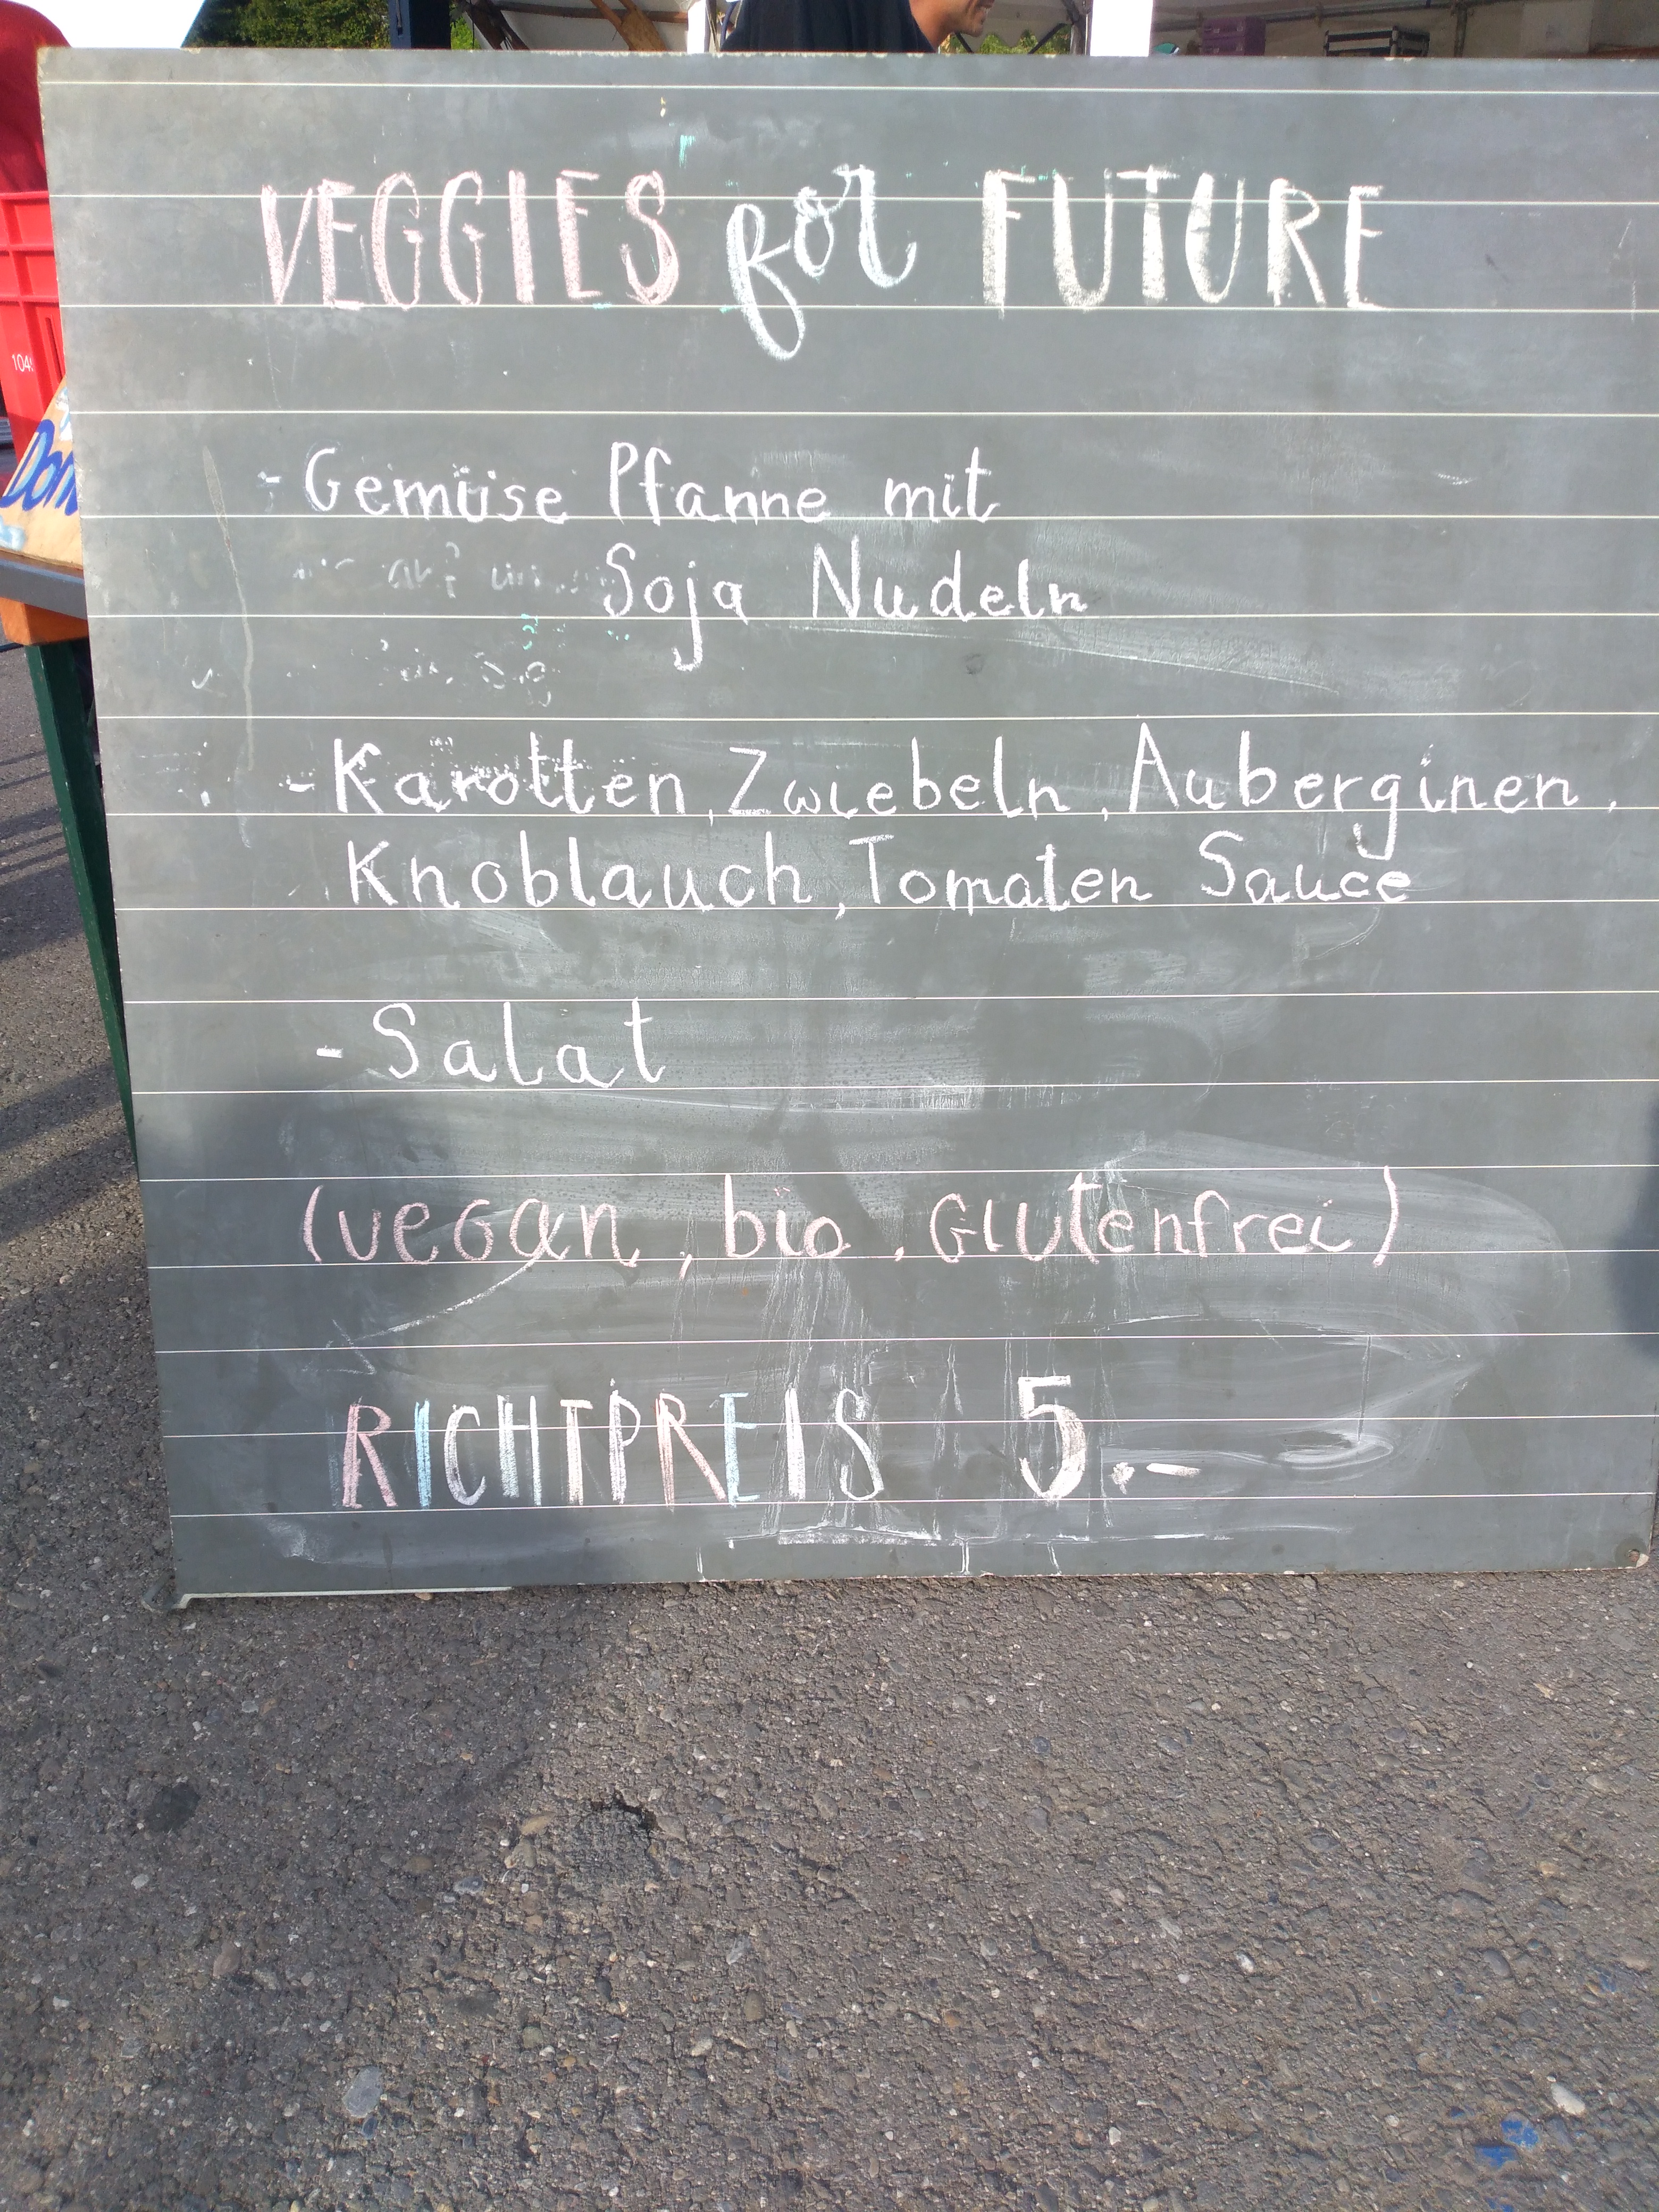 VEGGIES for FUTURE
- Gemüse Pfanne mit
Soja Nudeln
- Karotten, Zwiebeln, Auberginen,
Knoblauch, Tomaten Sauce
- Salat
(vegan, bio, Glutenfrei)
RICHTPREIS 5.-
104
Don